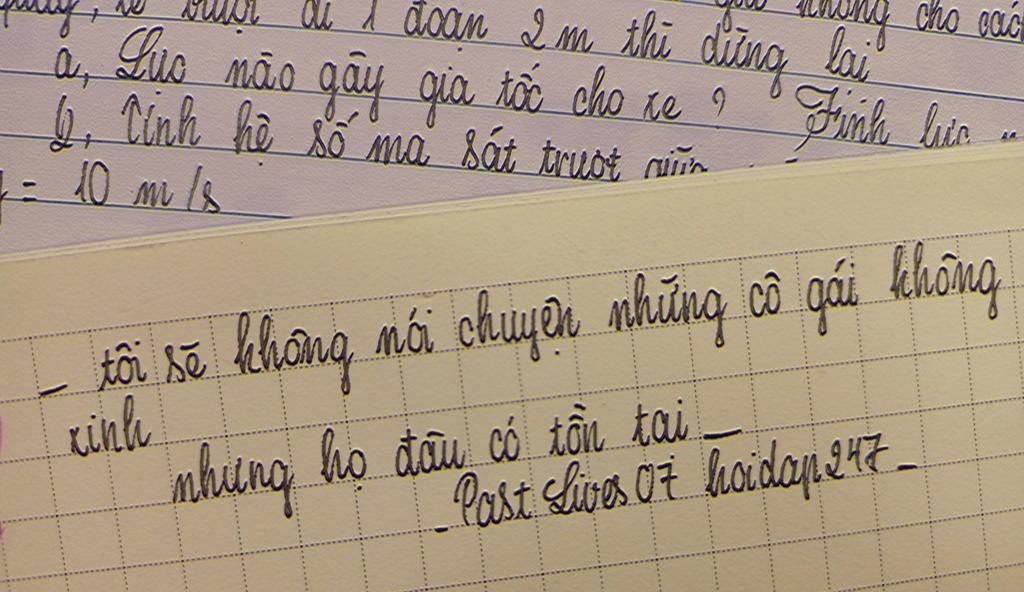 đi 1 đoạn 2 m thì dừng lại không cho
a, Lực nào gây gia tốc cho xe ? Tính lực
b, Tính hệ số ma sát trượt giữa
= 10 m/s
_ tôi sẽ không nói chuyện những cô gái không
xinh
nhưng họ đâu có tồn tai _
_ Past Lives 07 hoidap247 _